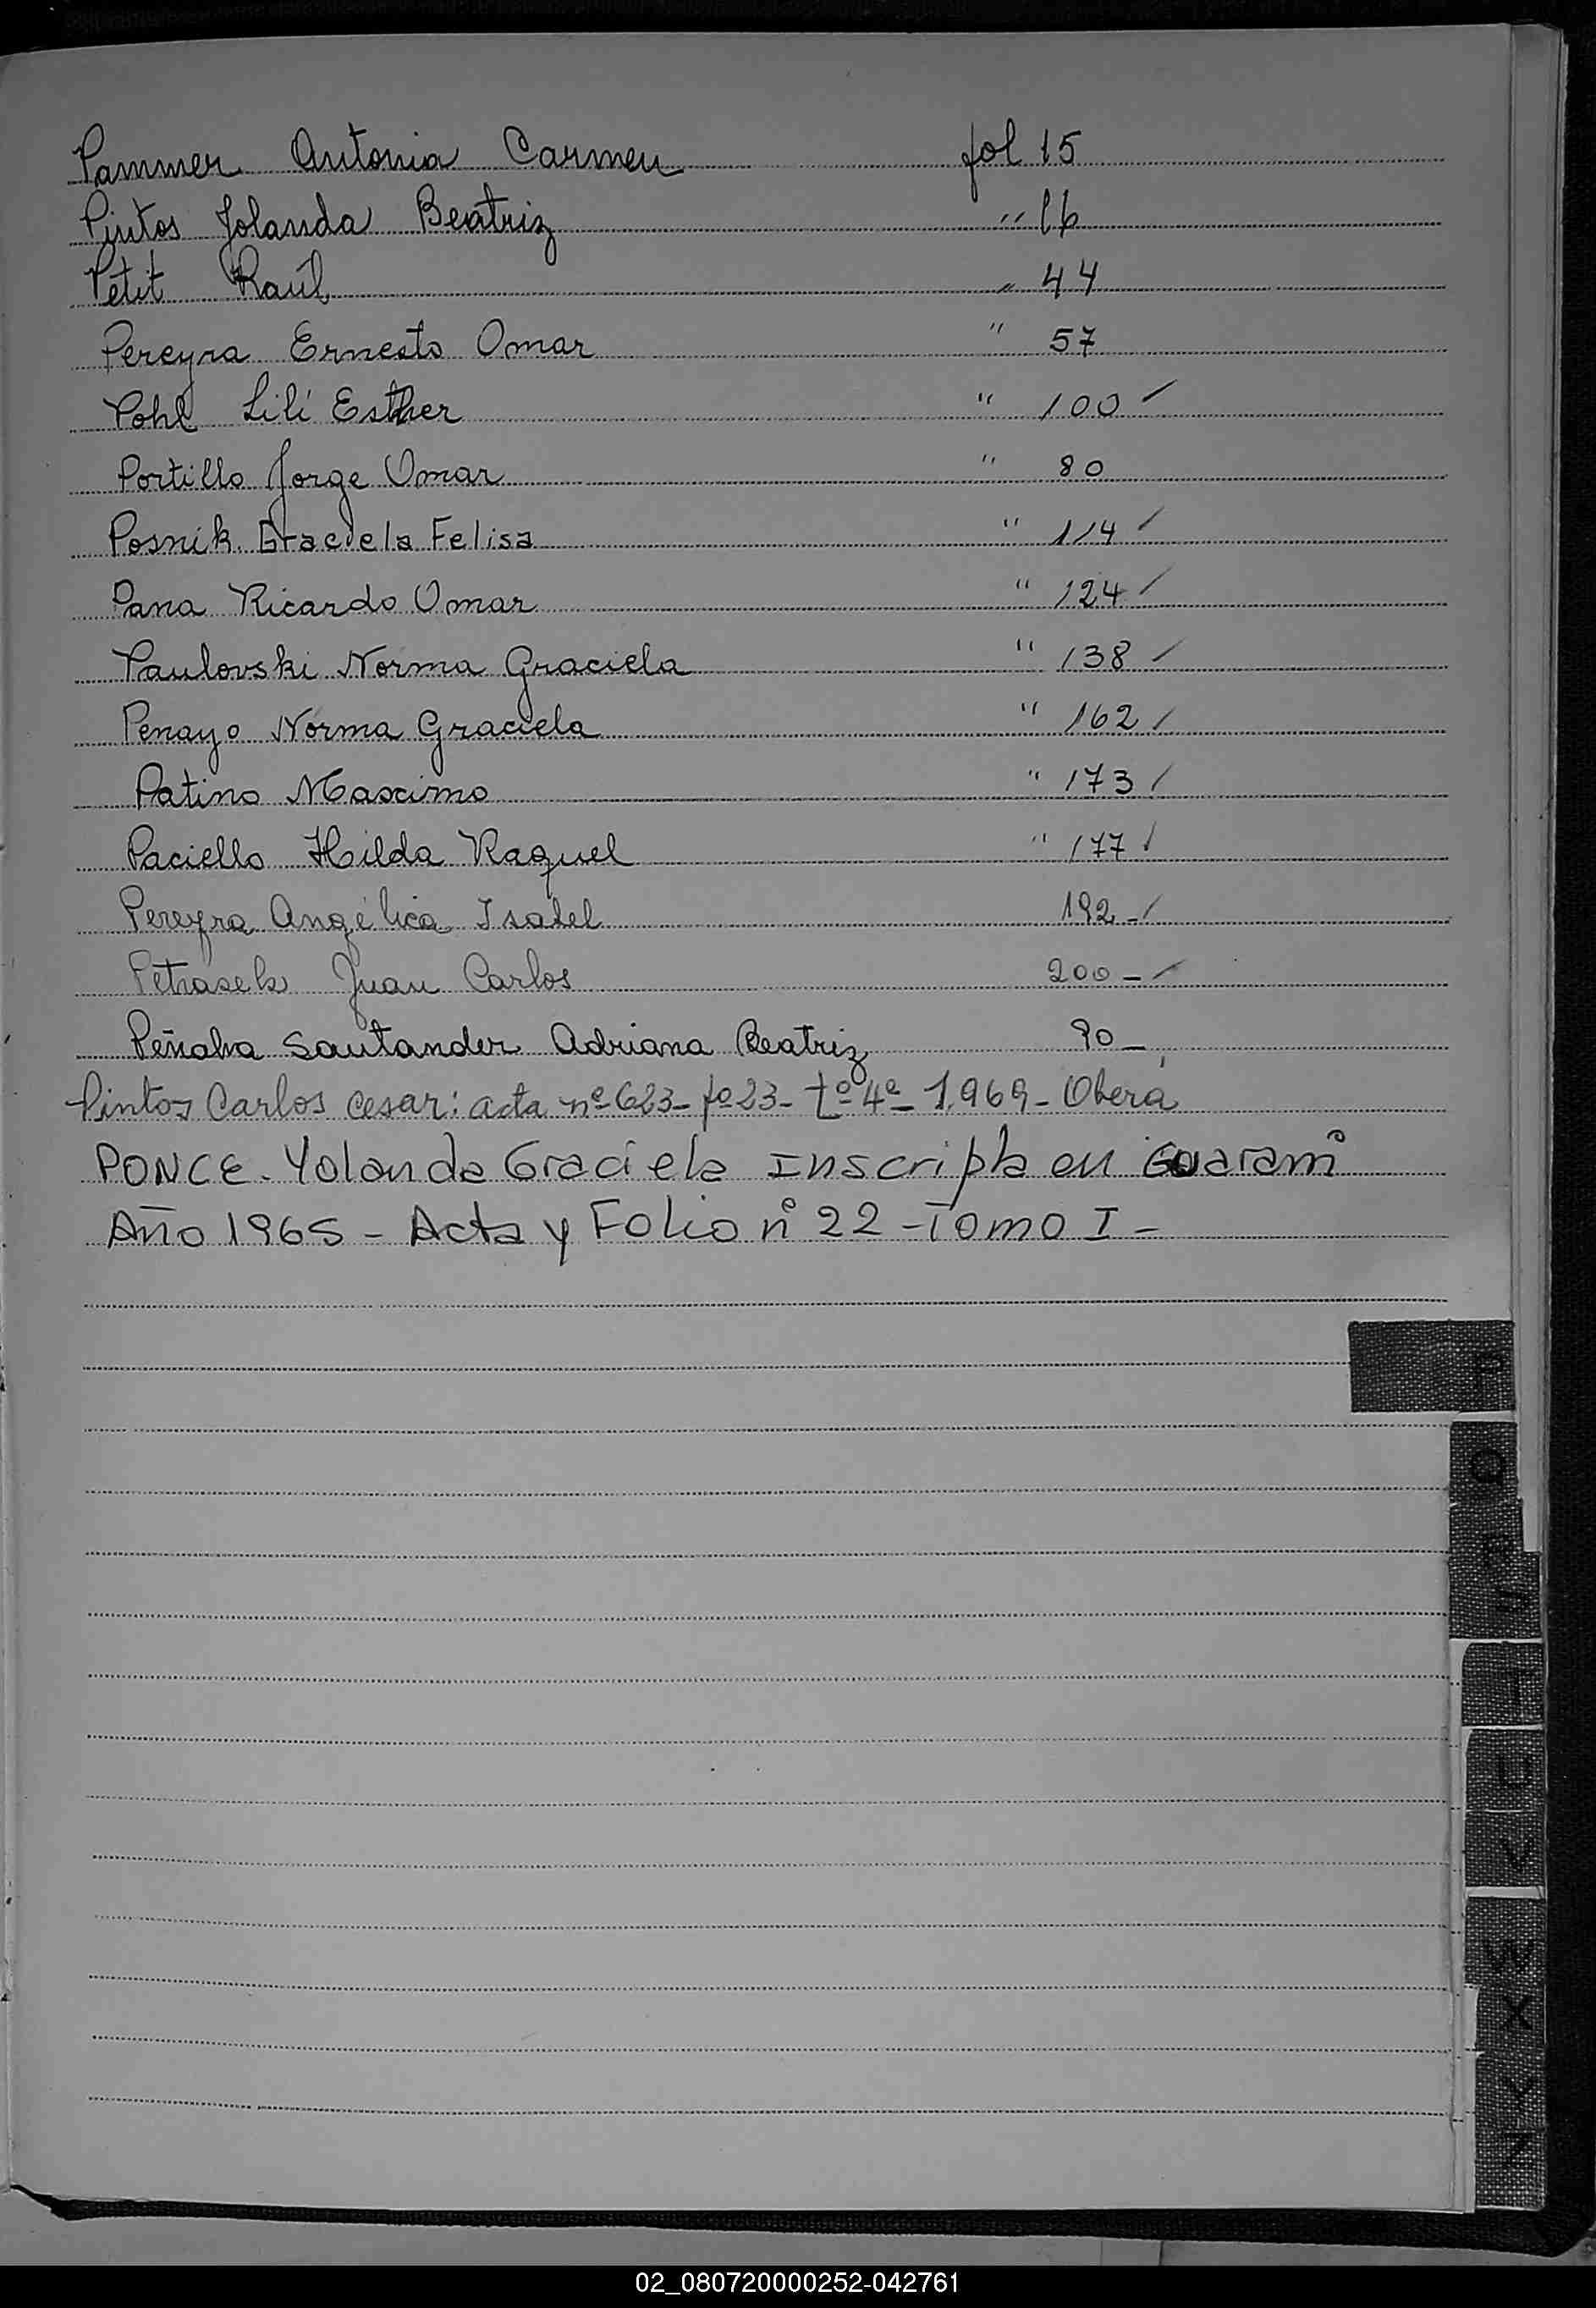 Pammer Antonia Carmen fol 15
Pintos Jolanda Beatriz " 16
Petit Raúl " 44
Pereyra Ernesto Omar " 57
Pohl Lili Esther " 100 ✓
Portillo Jorge Omar " 80
Posnik Graciela Felisa " 114 ✓
Pana Ricardo Omar " 124 ✓
Paulovski Norma Graciela " 138 ✓
Penayo Norma Graciela " 162 ✓
Patino Maximo " 173 ✓
Paciello Hilda Raquel " 177 ✓
Pereyra Angélica Isabel 192 - ✓
Petrasek Juan Carlos 200 - ✓
Peñalva Santander Adriana Beatriz 90 -
Pintos Carlos Cesar: acta nº 623 - fº 23 - tº 4º - 1.969 - Oberá
PONCE - Yolanda Graciela Inscripta en Guaraní
Año 1965 - Acta y Folio nº 22 - Tomo I -
P
Q
R
T
U
V
W
X
Y
Z
02_080720000252-042761